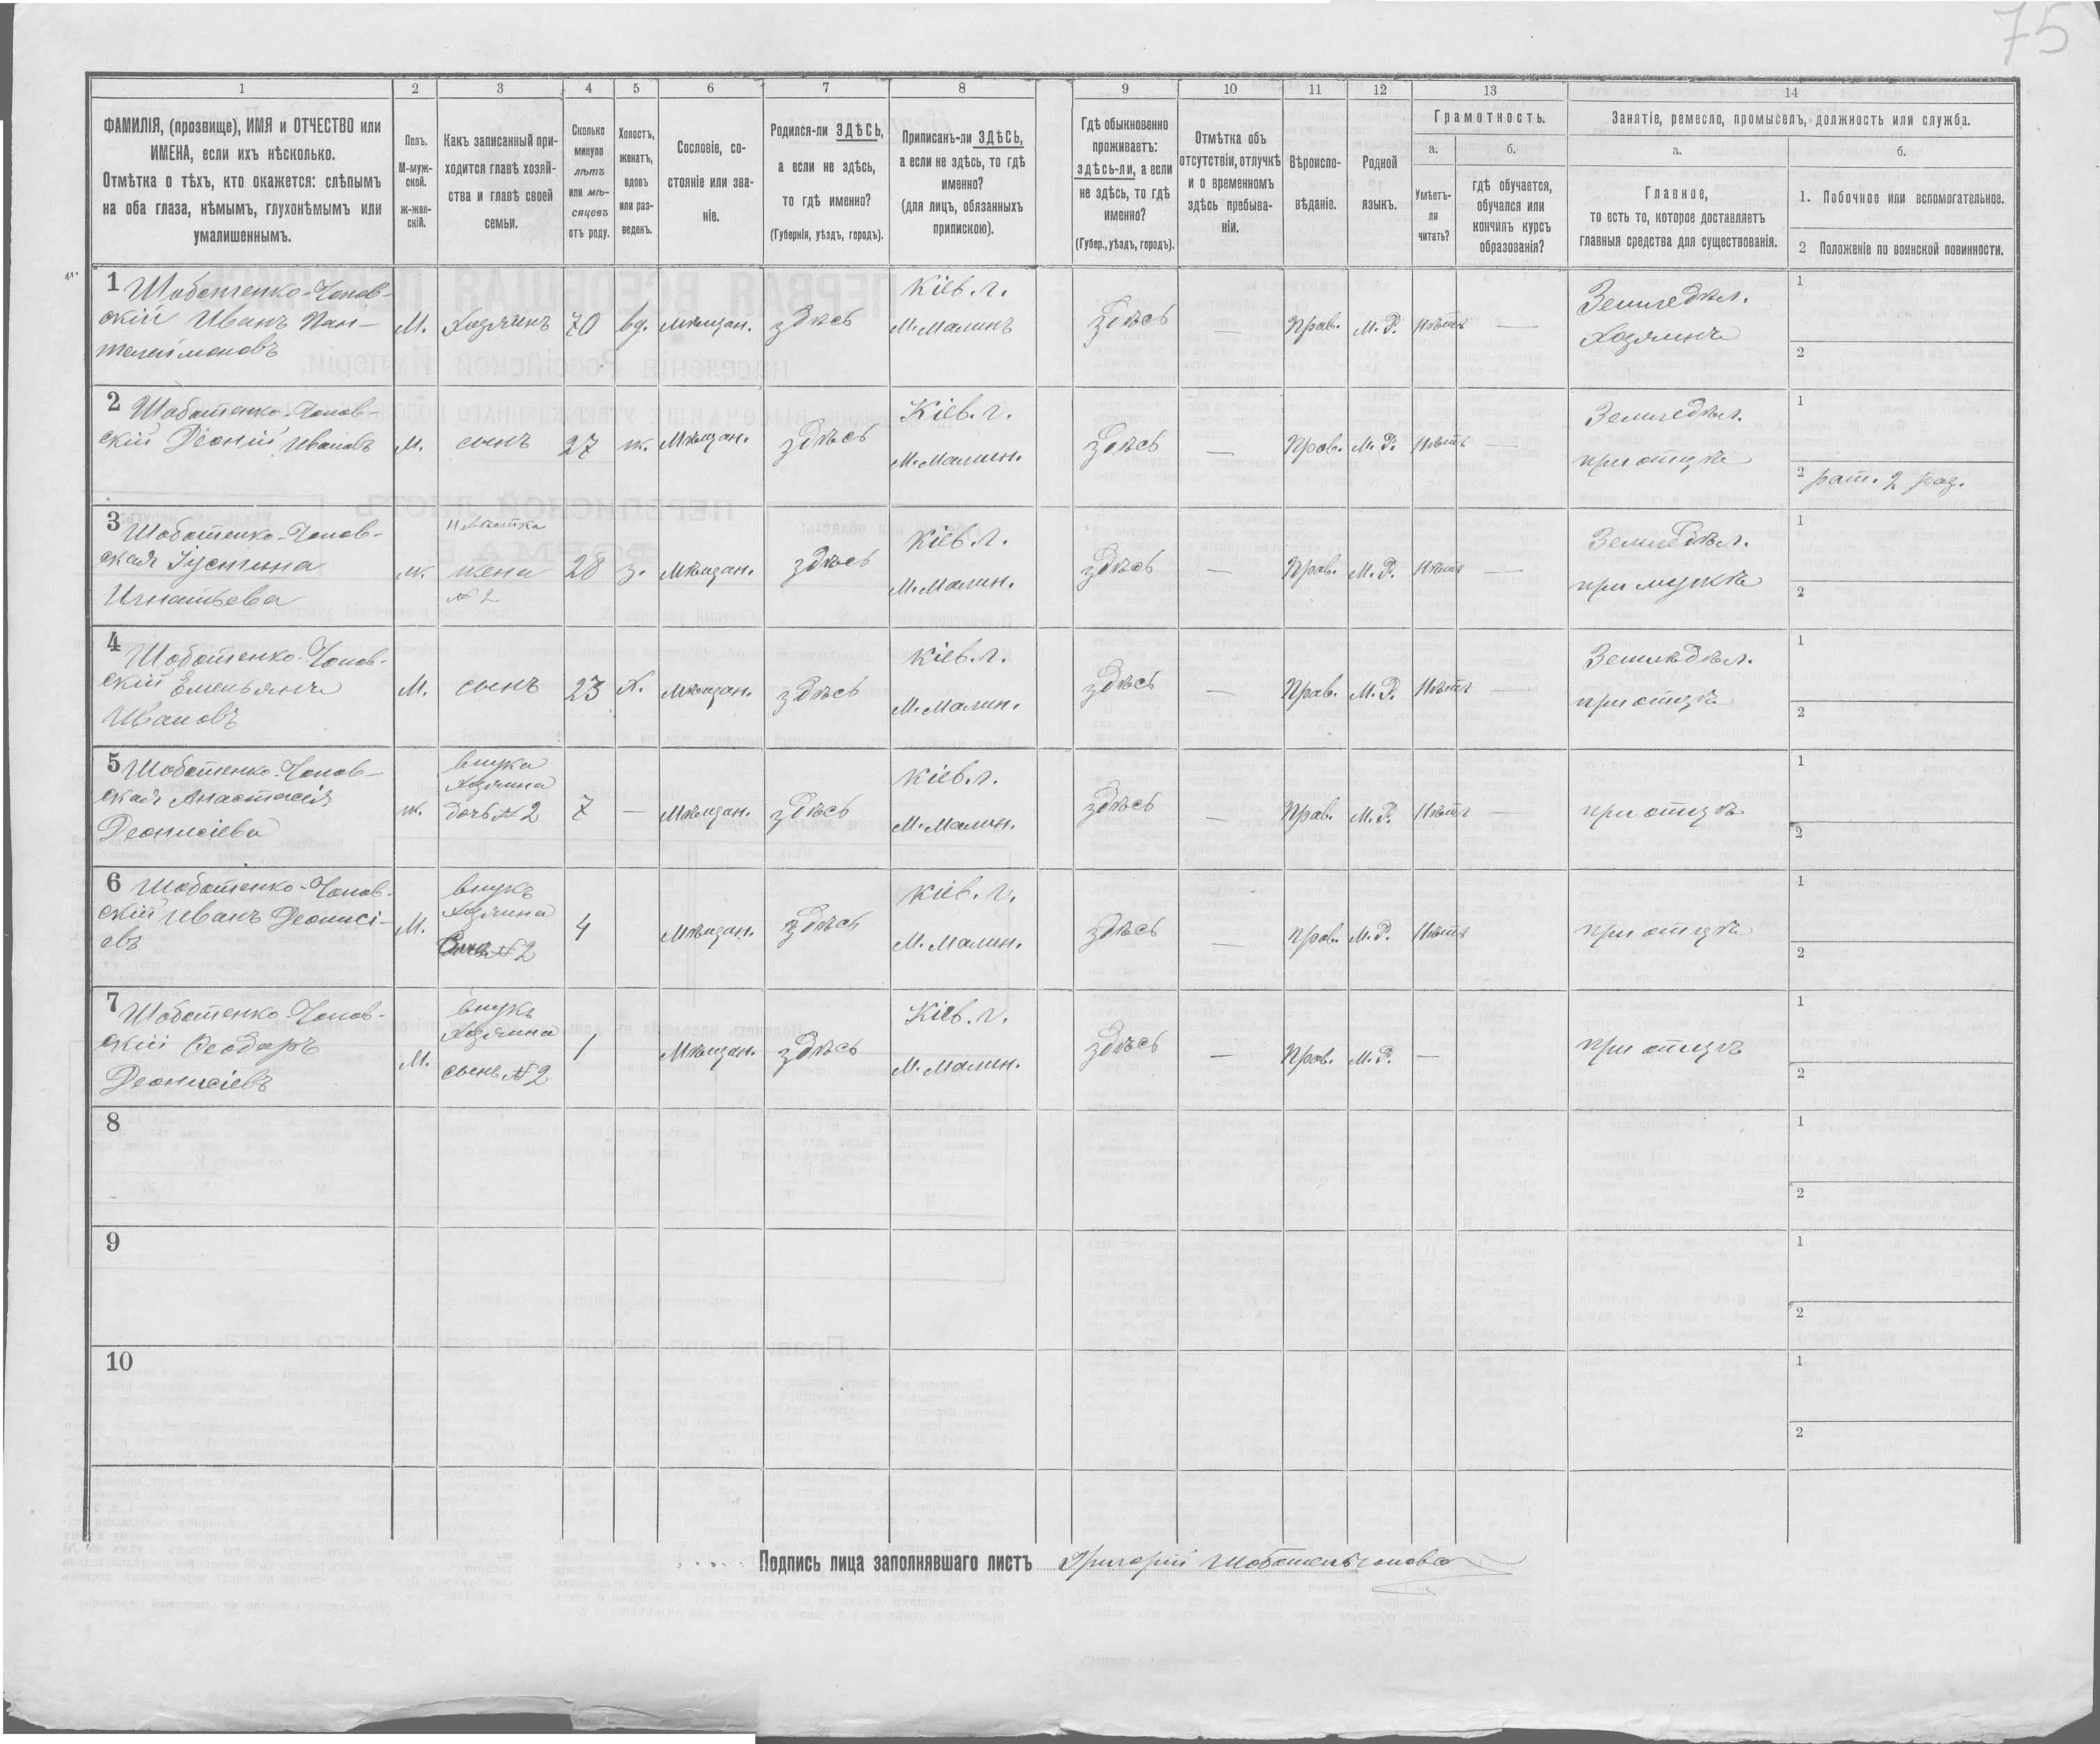 75
1
2
3
4
5
6
7
8
9
10
11
12
13
14
ФАМИЛІЯ, (прозвище), ИМЯ и ОТЧЕСТВО или
ИМЕНА, если ихъ нѣсколько.
Отмѣтка о тѣхъ, кто окажется: слѣпымъ
на оба глаза, нѣмымъ, глухонѣмымъ или
умалишеннымъ.
Полъ.
М-муж-
ской.
ж-жен-
скій.
Какъ записанный при-
ходится главѣ хозяй-
ства и главѣ своей
семьи.
Сколько
минуло
лѣтъ
или мѣ-
сяцевъ
отъ роду.
Холостъ,
женатъ,
вдовъ
или раз-
веденъ.
Сословіе, со-
стояніе или зва-
ніе.
Родился-ли ЗДѢСЬ,
а если не здѣсь,
то гдѣ именно?
(Губернія, уѣздъ, городъ).
Приписанъ-ли ЗДѢСЬ,
а если не здѣсь, то гдѣ
именно?
(для лицъ, обязанныхъ
припискою).
Гдѣ обыкновенно
проживаетъ:
здѣсь-ли, а если
не здѣсь, то гдѣ
именно?
(Губер., уѣздъ, городъ).
Отмѣтка объ
отсутствіи, отлучкѣ
и о временномъ
здѣсь пребыва-
ніи.
Вѣроиспо-
вѣданіе.
Родной
языкъ.
Грамотность.
а.
Умѣетъ-
ли
читать?
б.
гдѣ обучается,
обучался или
кончилъ курсъ
образованія?
Занятіе, ремесло, промыселъ, должность или служба.
а.
Главное,
то есть то, которое доставляетъ
главныя средства для существованія.
б.
1. Побочное или вспомогательное.
2 Положеніе по воинской повинности.
1 Шобатенко-Чопов-
скій Иванъ Пан-
телеймоновъ
М.
Хозяинъ
70
вд.
Мѣщан.
здѣсь
Кіев. г.
м. Малинъ
здѣсь
—
Прав.
М. Р.
Нѣтъ
—
Земледѣл.
Хозяинъ
1
2
2 Шобатенко-Чопов-
скій Деоній Ивановъ
М.
сынъ
27
ж.
Мѣщан.
здѣсь
Кіев. г.
м. Малин.
здѣсь
—
Прав.
М. Р.
Нѣтъ
—
Земледѣл.
при отцѣ
1
2 рат. 2 раз.
3 Шобатенко-Чопов-
ская Іустина
Игнатьева
ж.
Невѣстка
жена
№ 2
28
з.
Мѣщан.
здѣсь
Кіев. г.
м. Малин.
здѣсь
—
Прав.
М. Р.
Нѣтъ
—
Земледѣл.
при мужѣ
1
2
4 Шобатенко-Чопов-
скій Емельянъ
Ивановъ
М.
сынъ
23
Х.
Мѣщан.
здѣсь
Кіев. г.
м. Малин.
здѣсь
—
Прав.
М. Р.
Нѣтъ
—
Земледѣл.
при отцѣ
1
2
5 Шобатенко-Чопов-
ская Анастасія
Деонисіева
ж.
внука
Хозяина
дочь № 2
7
—
Мѣщан.
здѣсь
Кіев. г.
м. Малин.
здѣсь
—
Прав.
М. Р.
Нѣтъ
при отцѣ
1
2
6 Шобатенко-Чопов-
скій Иванъ Деонисі-
евъ
М.
внукъ
Хозяина
Сынъ № 2
4
Мѣщан.
здѣсь
Кіев. г.
м. Малин.
здѣсь
—
Прав.
М. Р.
Нѣтъ
при отцѣ
1
2
7 Шобатенко-Чопов-
скій Ѳеодоръ
Деонисіевъ
М.
внукъ
Хозяина
сынъ № 2
1
Мѣщан.
здѣсь
Кіев. г.
м. Малин.
здѣсь
—
Прав.
М. Р.
—
при отцѣ
1
2
8
1
2
9
1
2
10
1
2
Подпись лица заполнявшаго листъ Григорій